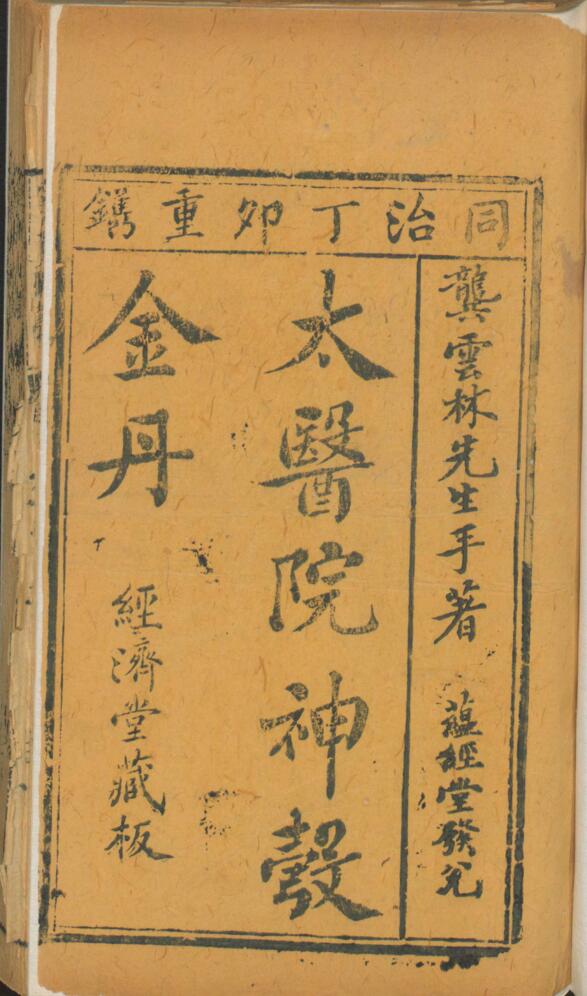 同治丁卯重鐫
龔雲林先生手著 蘊經堂發兌
太醫院神彀
金丹 經濟堂藏板